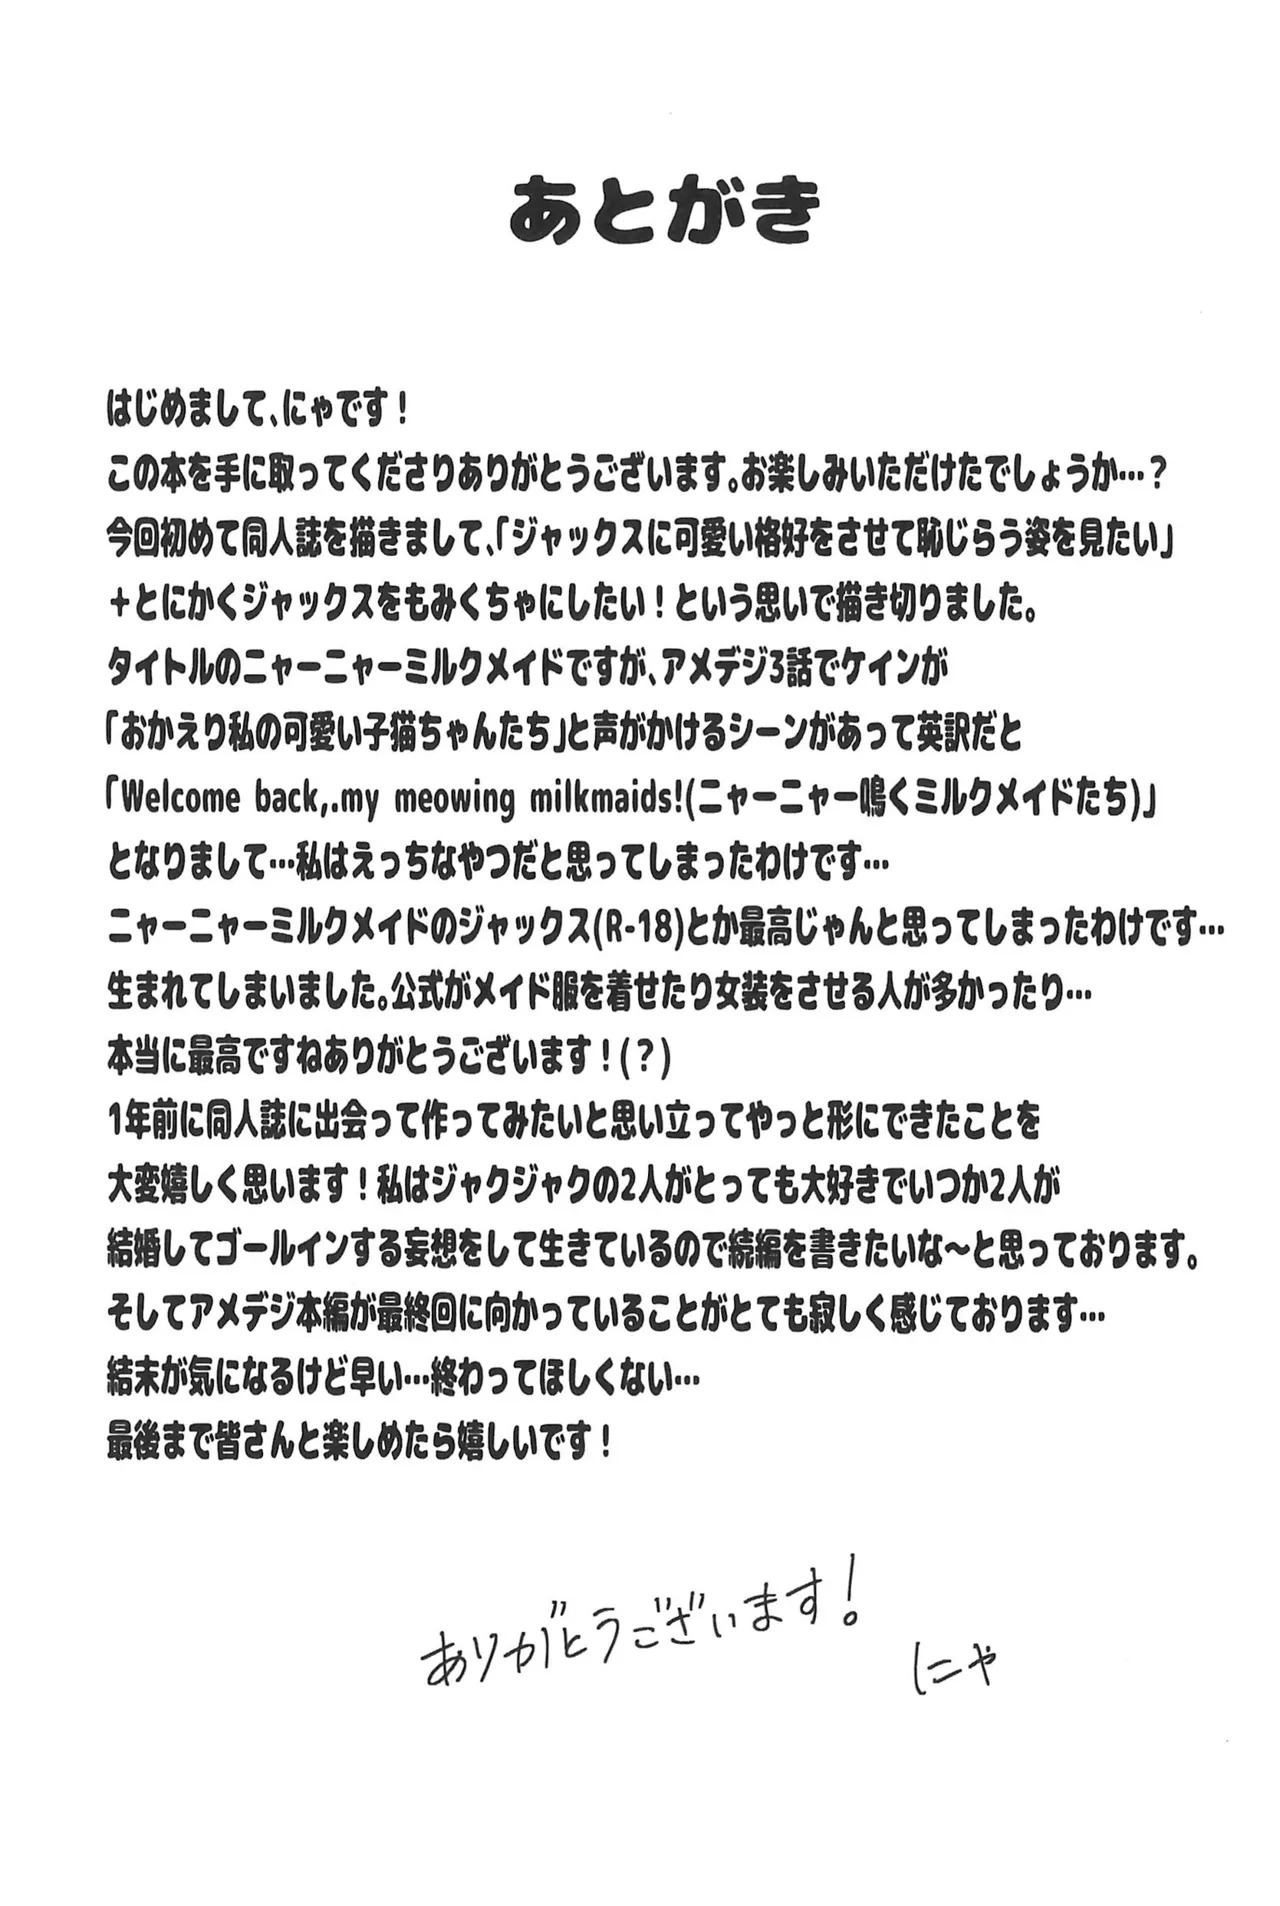 あとがき
はじめまして、にゃです！
この本を手に取ってくださりありがとうございます。お楽しみいただけたでしょうか…？
今回初めて同人誌を描きまして、「ジャックスに可愛い格好をさせて恥じらう姿を見たい」
＋とにかくジャックスをもみくちゃにしたい！という思いで描き切りました。
タイトルのニャーニャーミルクメイドですが、アメデジ3話でケインが
「おかえり私の可愛い子猫ちゃんたち」と声がかけるシーンがあって英訳だと
「Welcome back,.my meowing milkmaids!(ニャーニャー鳴くミルクメイドたち)」
となりまして…私はえっちなやつだと思ってしまったわけです…
ニャーニャーミルクメイドのジャックス(R-18)とか最高じゃんと思ってしまったわけです…
生まれてしまいました。公式がメイド服を着せたり女装をさせる人が多かったり…
本当に最高ですねありがとうございます！(？)
1年前に同人誌に出会って作ってみたいと思い立ってやっと形にできたことを
大変嬉しく思います！私はジャクジャクの2人がとっても大好きでいつか2人が
結婚してゴールインする妄想をして生きているので続編を書きたいな～と思っております。
そしてアメデジ本編が最終回に向かっていることがとても寂しく感じております…
結末が気になるけど早い…終わってほしくない…
最後まで皆さんと楽しめたら嬉しいです！
ありがとうございます！
にゃ